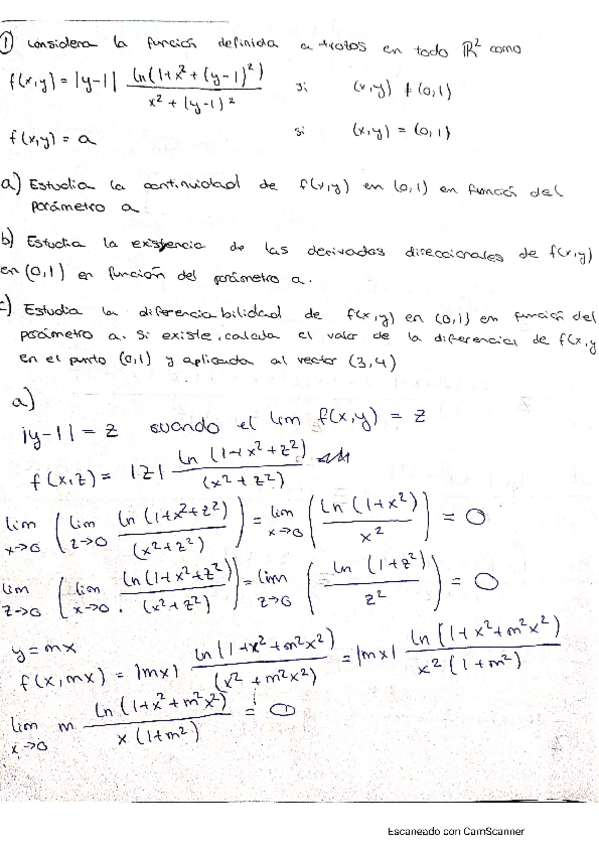 ① considera la función definida a trozos en todo ℝ² como
f(x,y) = |y-1| ln(1+x²+(y-1)²) / x²+(y-1)² si (x,y) ≠ (0,1)
f(x,y) = a si (x,y) = (0,1)
a) Estudia la continuidad de f(x,y) en (0,1) en función del
parámetro a
b) Estudia la existencia de las derivadas direccionales de f(x,y)
en (0,1) en función del parámetro a.
c) Estudia la diferenciabilidad de f(x,y) en (0,1) en función del
parámetro a. si existe, calcula el valor de la diferencial de f(x,y
en el punto (0,1) y aplicada al vector (3,4)
a)
|y-1| = z cuando el lim f(x,y) = z
f(x,z) = |z| ln(1+x²+z²) / (x²+z²)
lim x→0 ( lim z→0 ln(1+x²+z²) / (x²+z²) ) = lim x→0 ( ln(1+x²) / x² ) = 0
lim z→0 ( lim x→0 ln(1+x²+z²) / (x²+z²) ) = lim z→0 ( ln(1+z²) / z² ) = 0
y = mx
f(x,mx) = |mx| ln(1+x²+m²x²) / (x²+m²x²) = |mx| ln(1+x²+m²x²) / x²(1+m²)
lim x→0 m ln(1+x²+m²x²) / x(1+m²) = 0
Escaneado con CamScanner